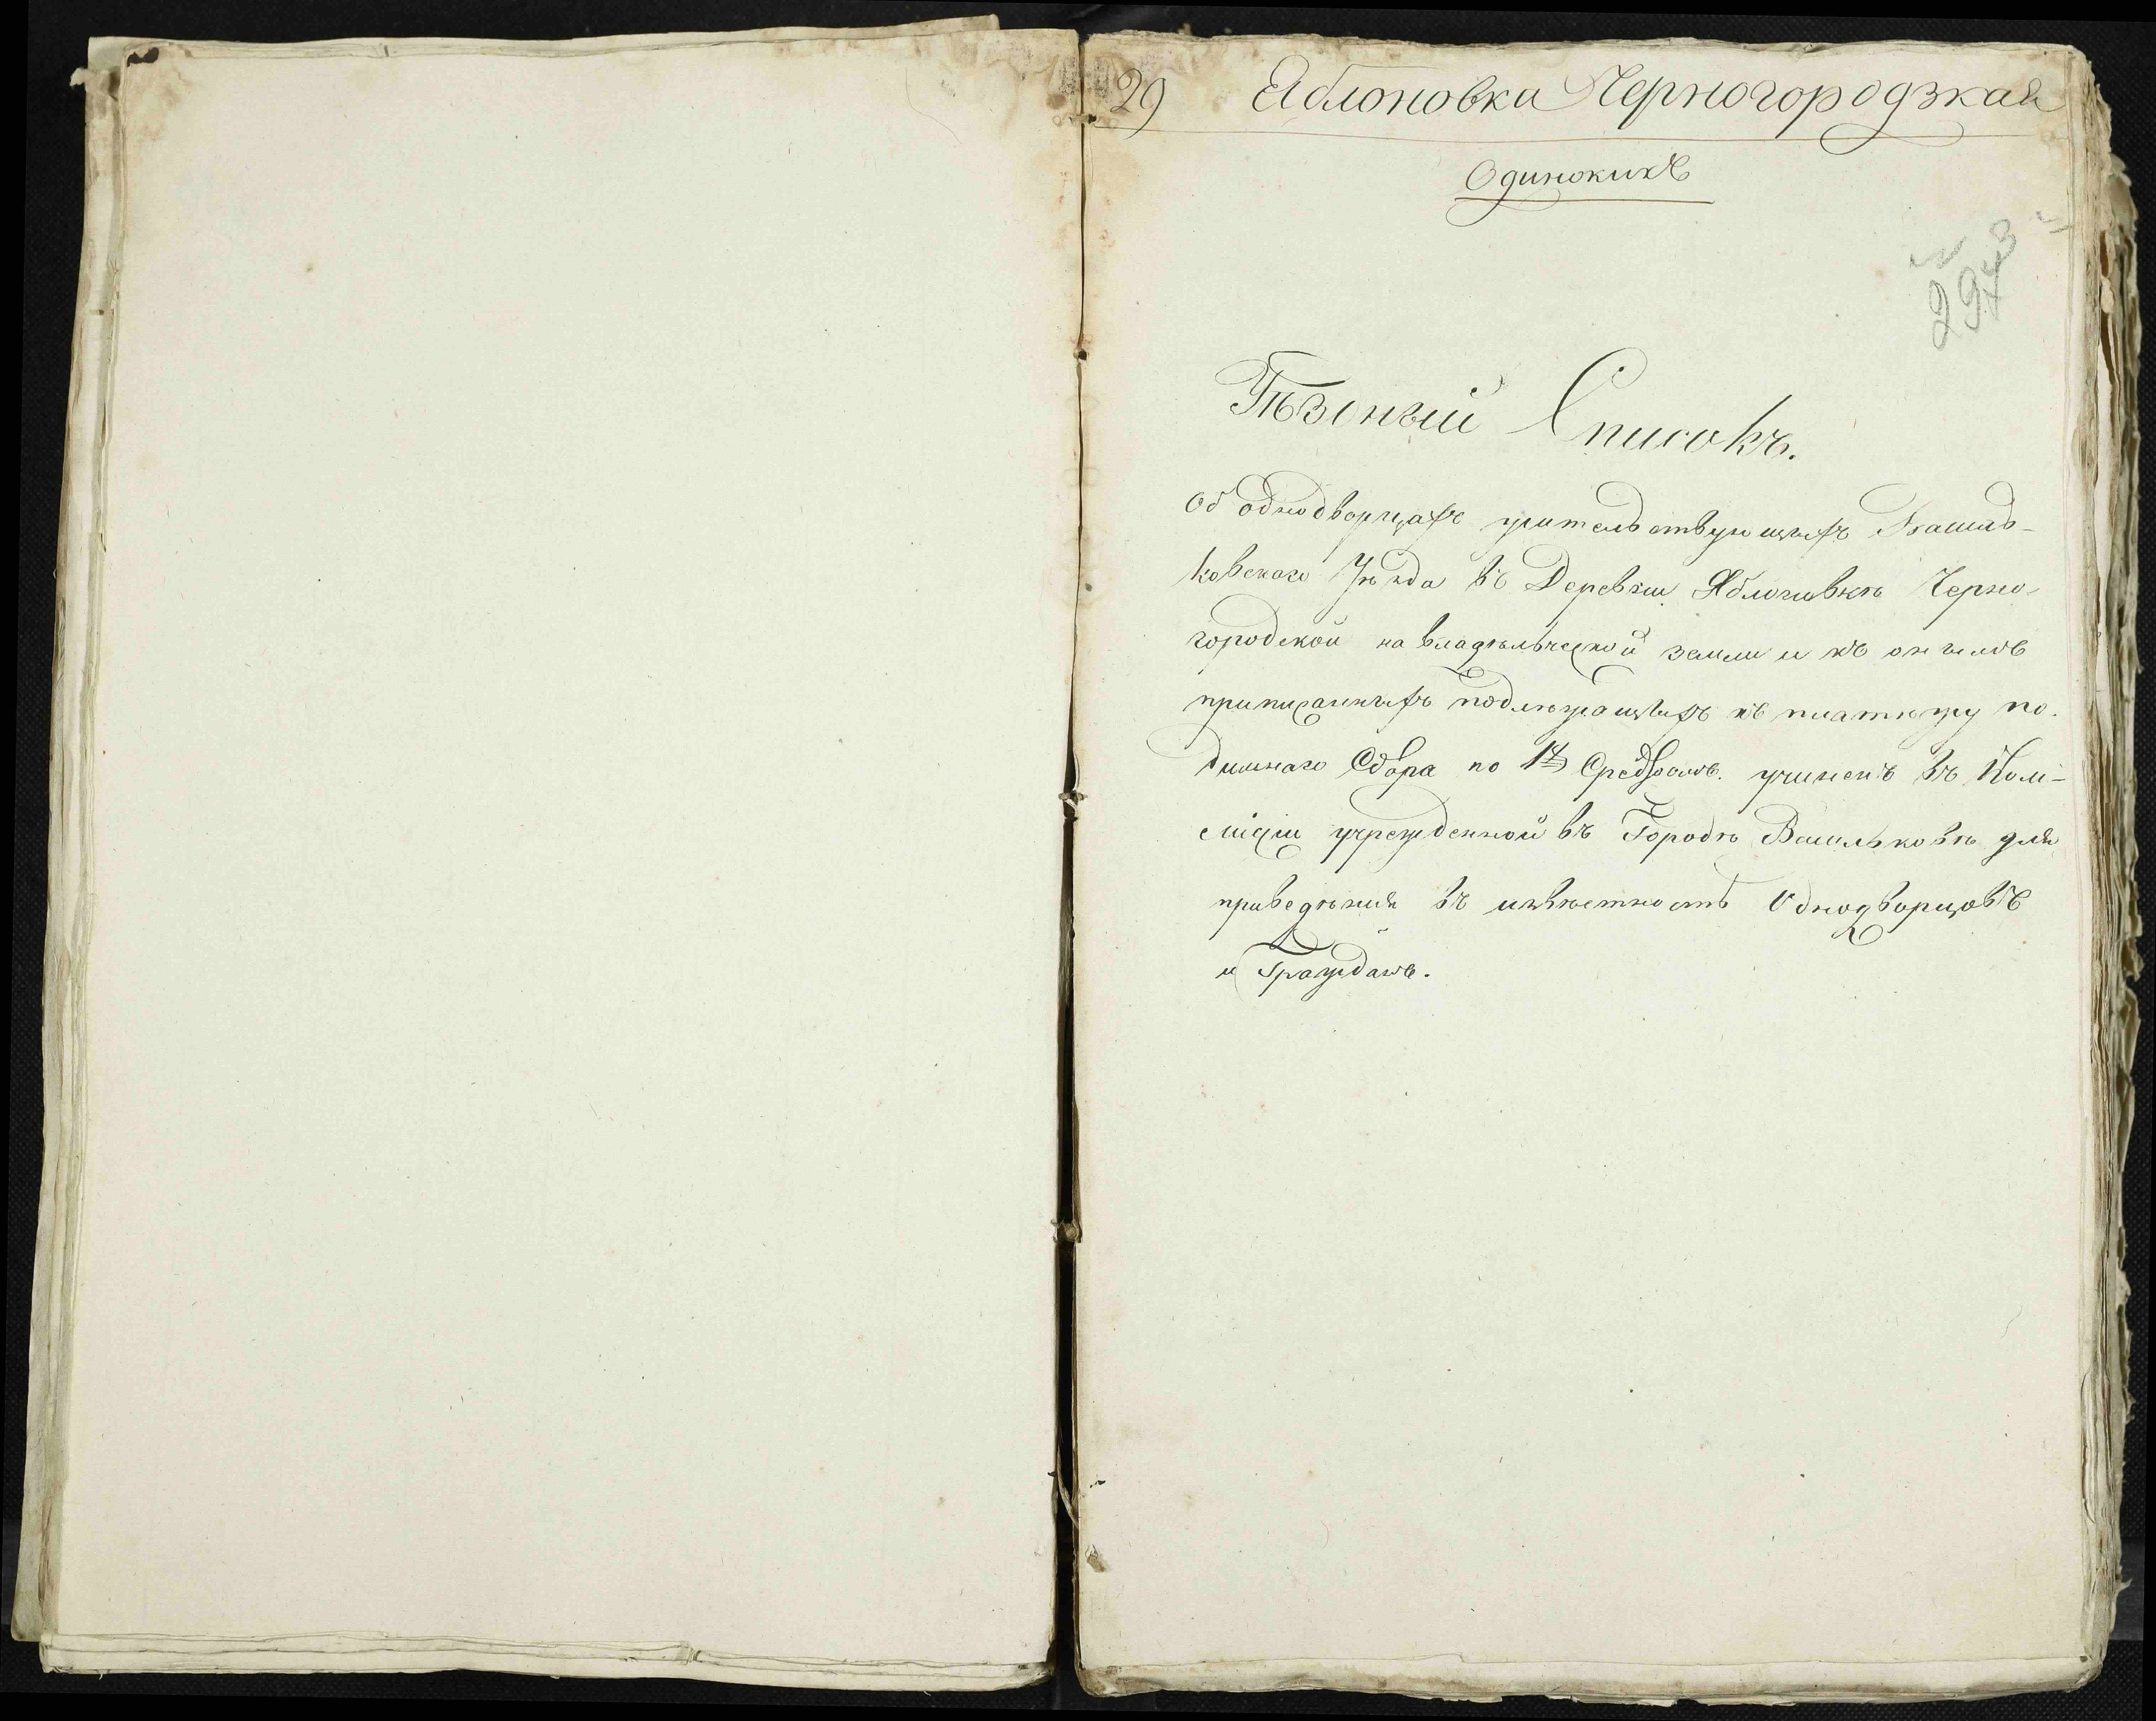 29 Яблоновка Черногородзкая
Одинокихъ
293
Списокъ.
Об однодворцахъ жительствующихъ Василь-
ковскаго Уѣзда въ Деревни Яблоновкѣ Черно-
городской на владѣльческой земли и къ онымъ
приписанныхъ подлежащихъ къ платежу по-
дымнаго Сбора по учиненъ въ Ком-
мисіи учрежденной въ Городѣ Васильковѣ для
приведѣния въ извѣстность Однодворцовъ
и Гражданъ.